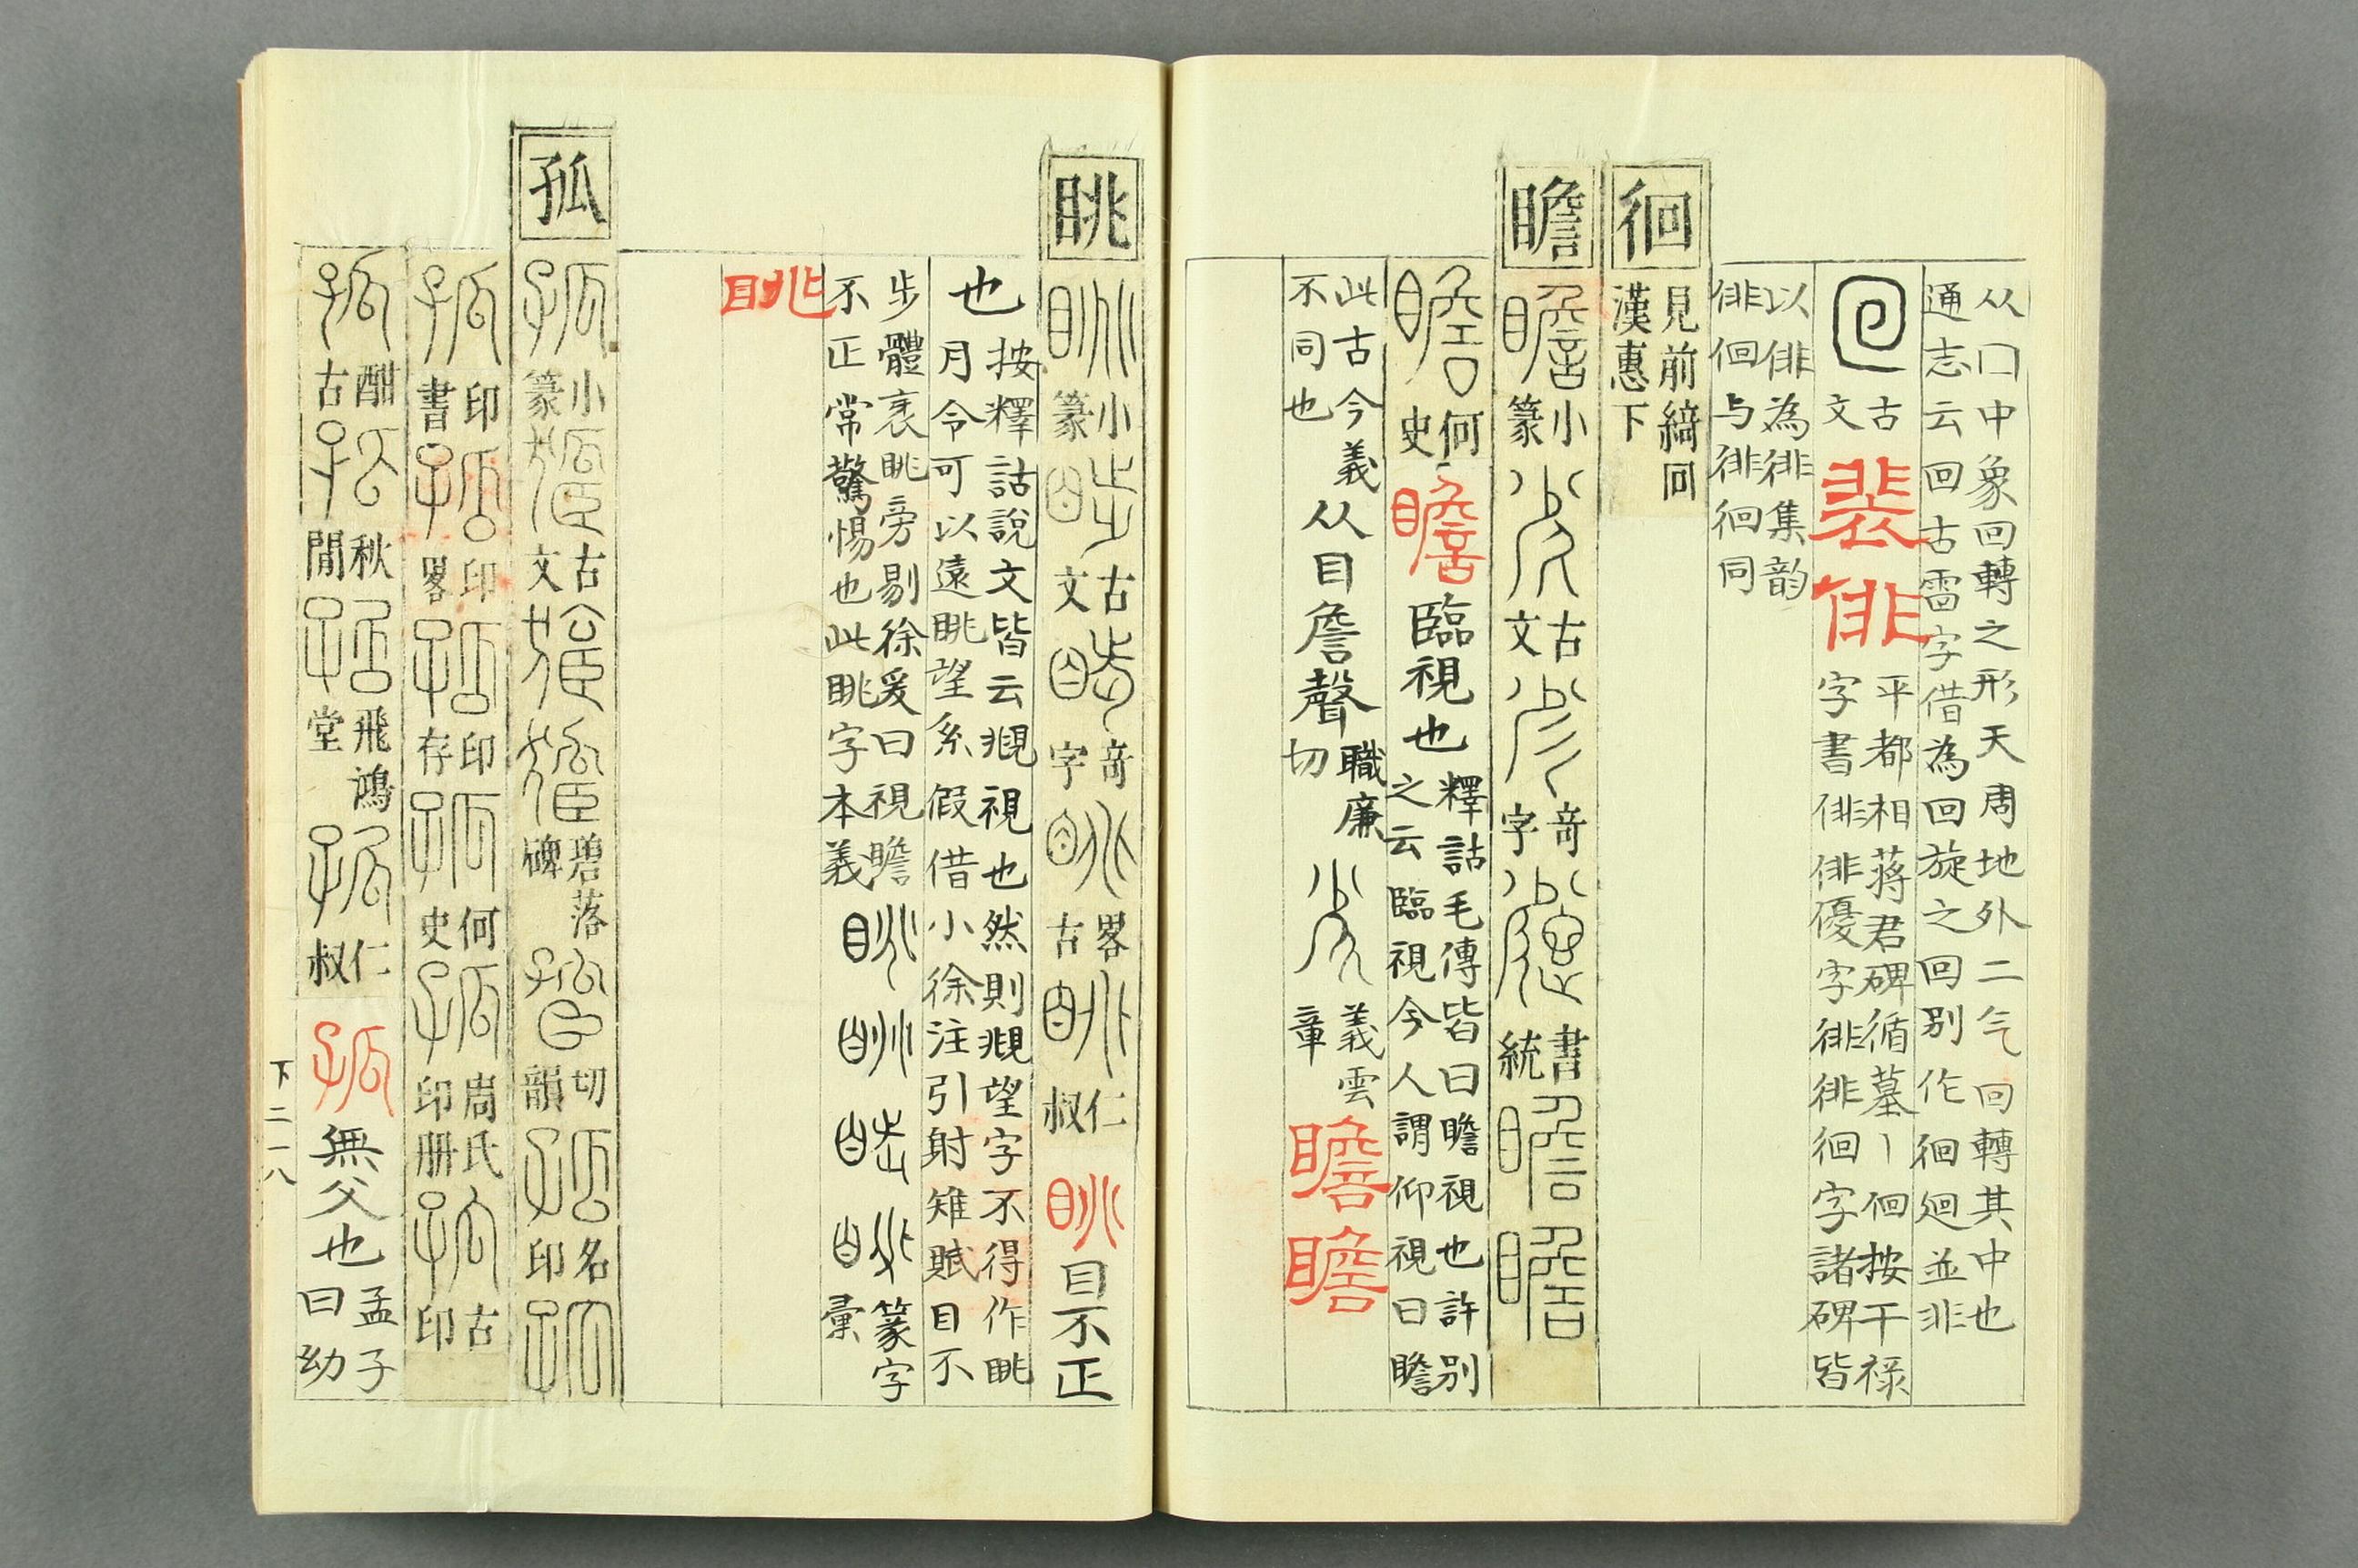 从囗中象回轉之形天周地外二气回轉其中也
通志云回古雷字借為回旋之回別作徊廻並非
古文
裴俳
平都相蔣君碑循墓丨徊按干祿
字書俳俳優字徘徘徊字諸碑皆
以俳為徘集韵
俳徊与徘徊同
徊
見前綺同
漢惠下
瞻
瞻 小篆
古文
奇字
書統
瞻
瞻
瞻 何史
瞻
臨視也
釋詁毛傳皆曰瞻視也許別
之云臨視今人謂仰視曰瞻
此古今義
不同也
从目詹聲
職廉
切
義雲
章
瞻瞻
眺
眺 小篆
古文
奇字
畧古
仁叔
眺
目不正
也
按釋詁說文皆云覜視也然則覜望字不得作眺
月令可以遠眺望系假借小徐注引射雉賦目不
步體衺眺旁剔徐爰曰視瞻
不正常驚惕也此眺字本義
篆字
彙
眺
孤
孤 小篆
古文
碧落碑
切韻
名印
孤
孤 印書
印畧
印存
何史
周氏印册
古印
孤 酣古
秋閒
飛鴻堂
仁叔
孤
無父也
孟子
曰幼
下二一八